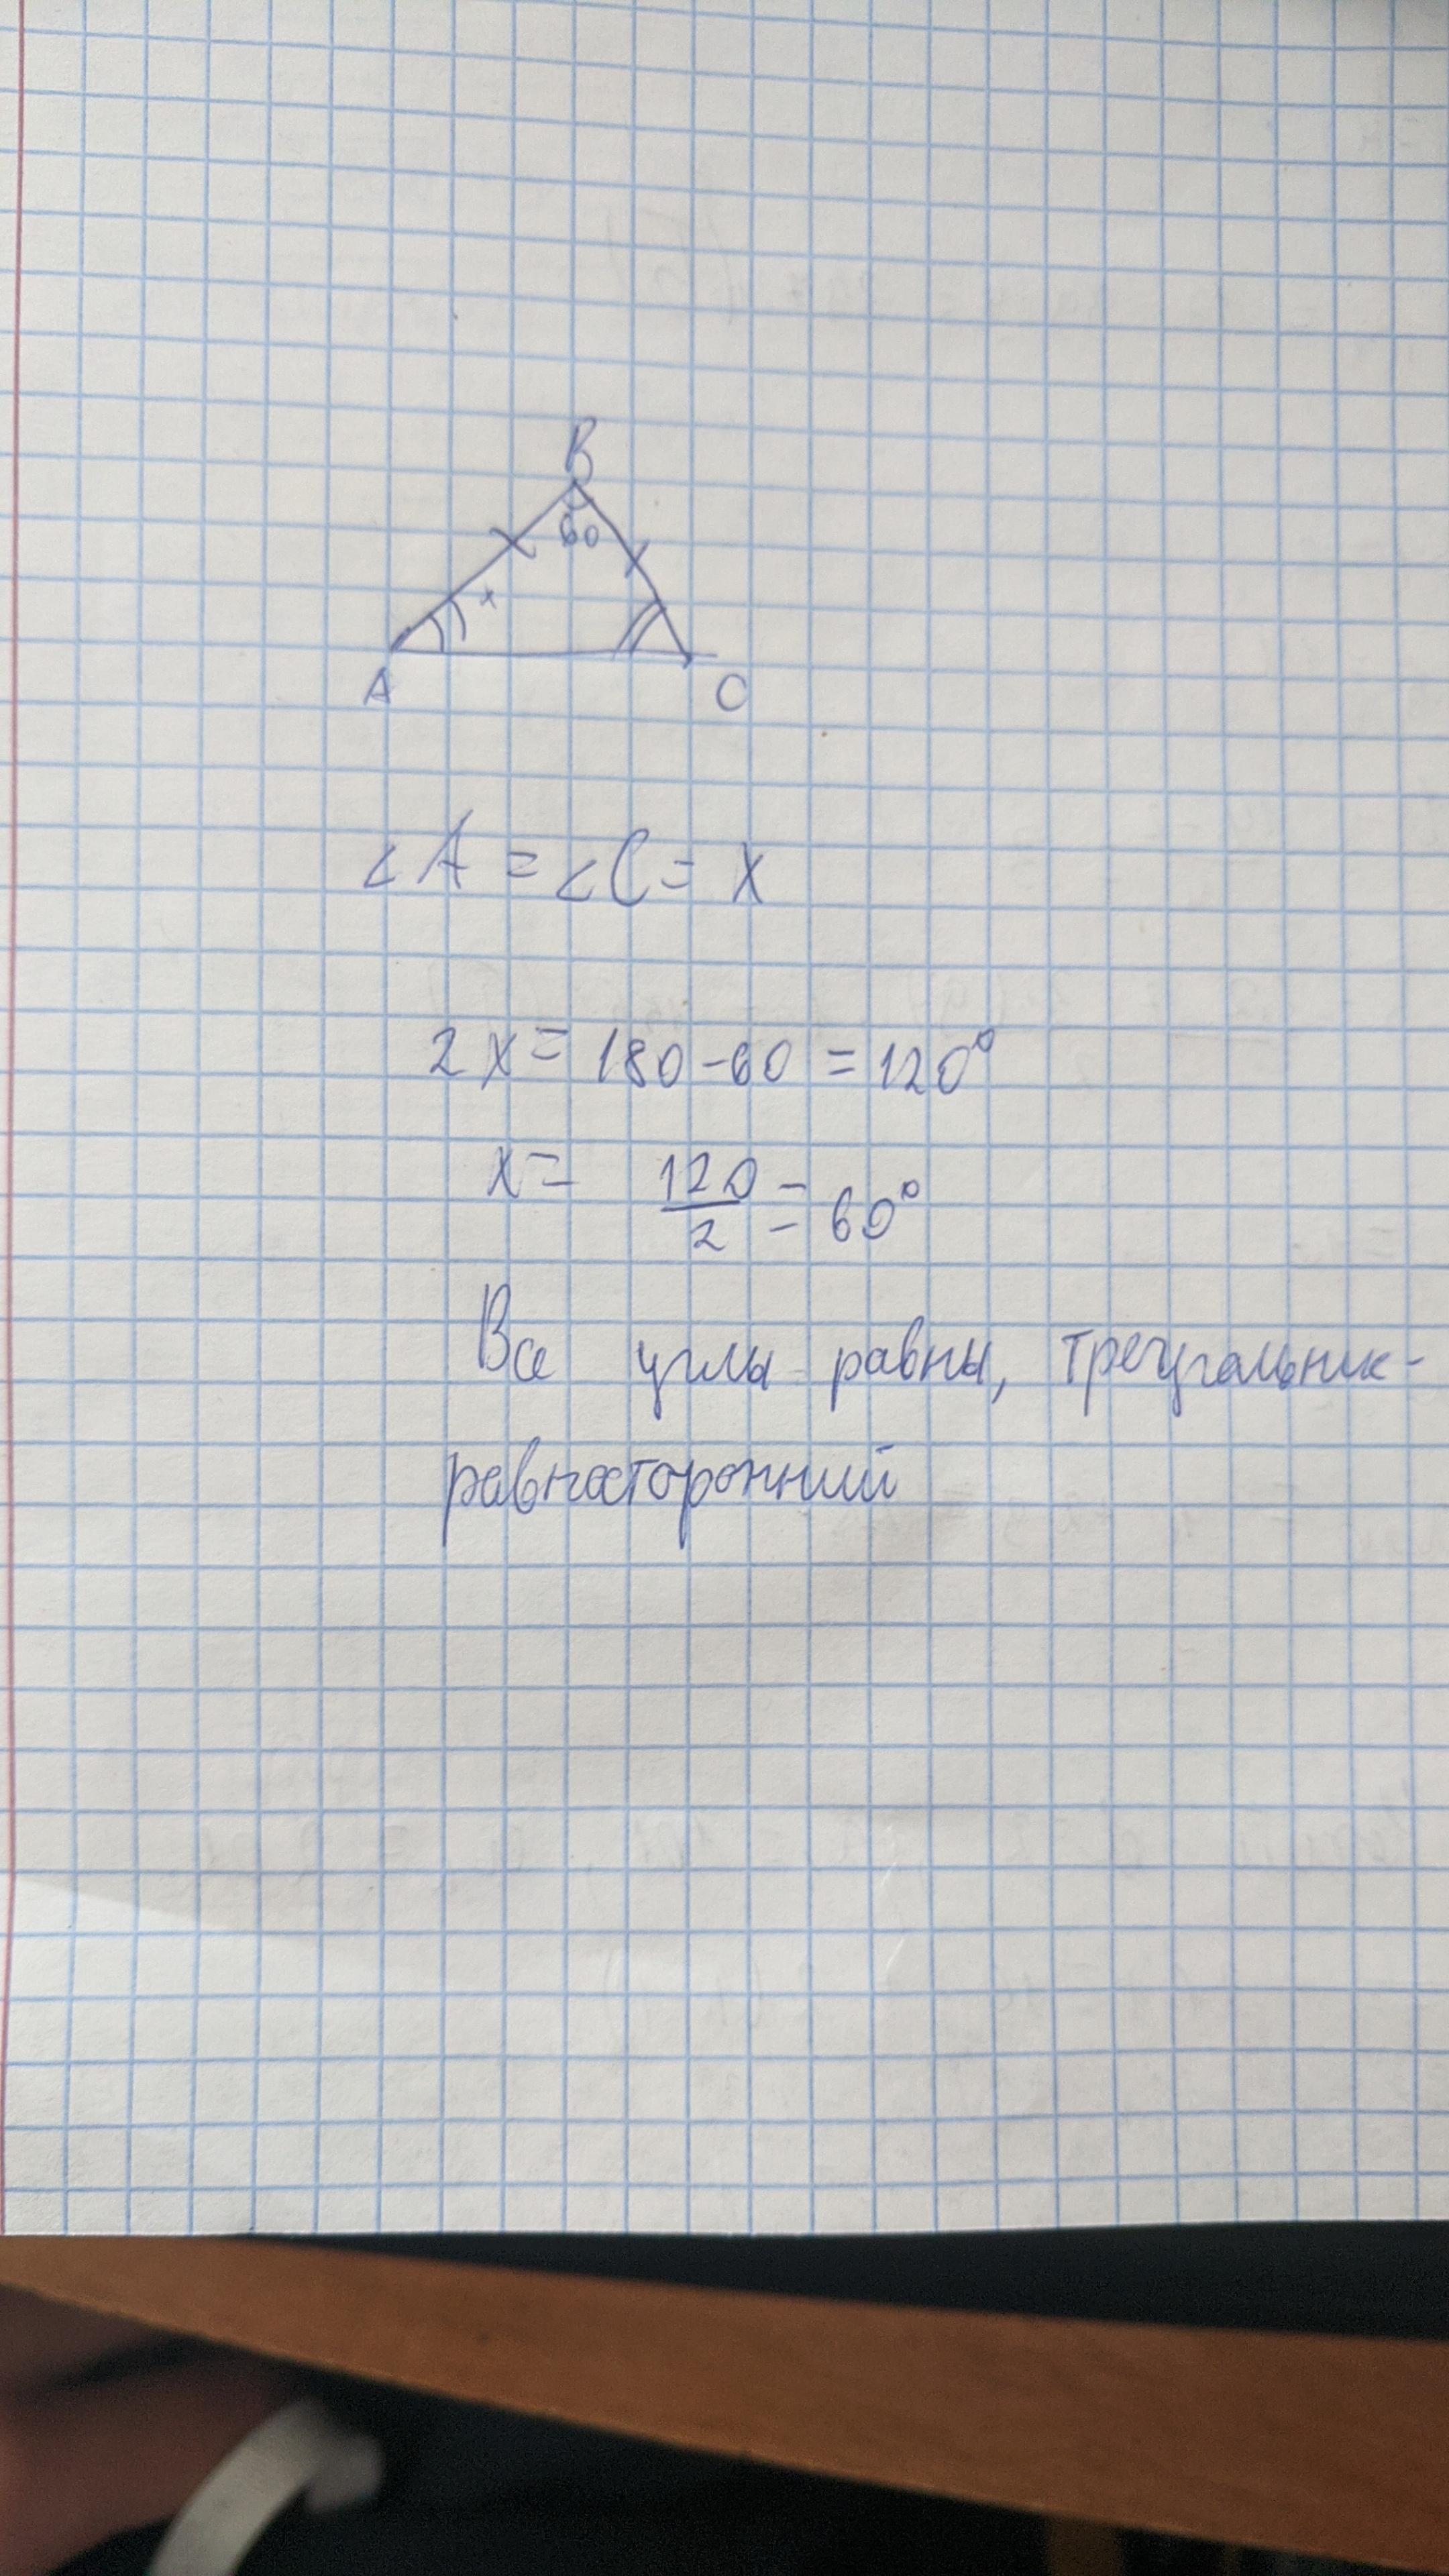 B
60
x
A C
∠A = ∠C = x
2x = 180-60 = 120°
x = 120/2 = 60°
Все углы равны, треугольник-
равносторонний